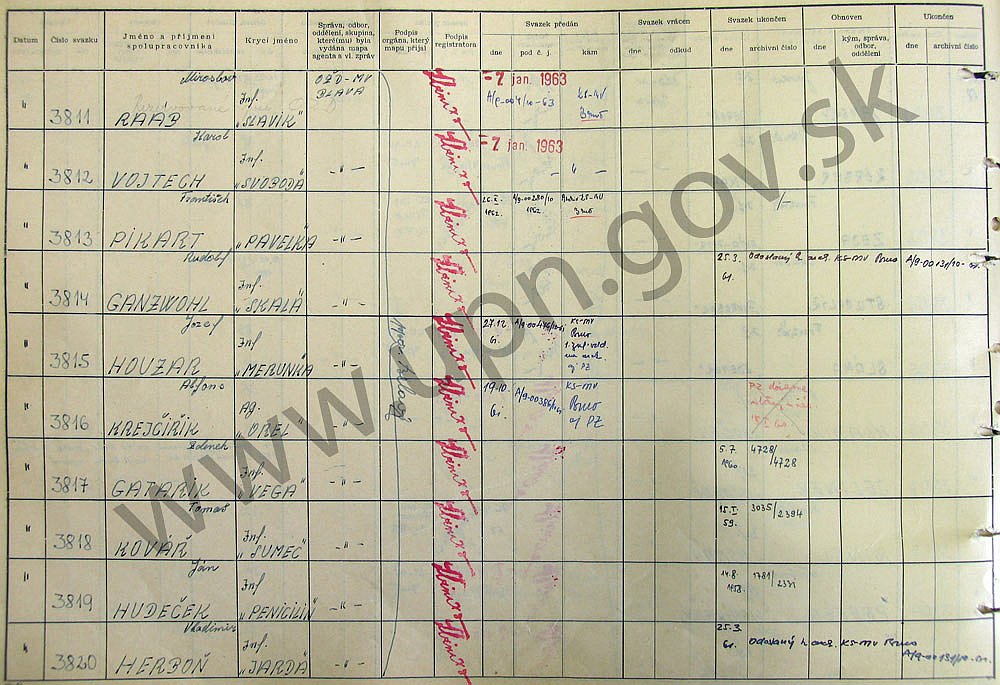 Datum
Číslo svazku
Jméno a příjmení
spolupracovníka
Krycí jméno
Správa, odbor,
oddělení, skupina,
které(mu) byla
vydána mapa
agenta a vl. zpráv
Podpis
orgána, který
mapu přijal
Podpis
registratora
Svazek předán
dne
pod č. j.
kam
Svazek vrácen
dne
odkud
Svazek ukončen
dne
archivní číslo
Obnoven
dne
kým, správa,
odbor,
oddělení
Ukončen
dne
archivní číslo
3811
Miroslav
RAAB
Inf.
"SLAVÍK"
BLAVA
- 7 jan. 1963
A/9-004/10-63
KS-MV
Brno
3812
Karol
VOJTECH
Inf.
"SVOBODA"
- " -
- 7 jan. 1963
- " -
3813
František
PIKART
"PAVELKA"
- " -
1962.
A/9-00280/10
1962.
Brno
3814
Rudolf
GANZWOHL
Inf.
"SKALA"
- " -
25.3.
61.
Odoslaný k arch. KS-MV Brno
3815
Jozef
HOUZAR
Inf
"MERUNKA"
- " -
27.12.
61.
KS-MV
Brno
3816
Alfons
KREJČIŘÍK
Ag.
"OREL"
- " -
19.10.
61.
KS-MV
Brno
3817
Zdenek
GATARÍK
Inf.
"VEGA"
- " -
5.7.
1960.
4728/4728
3818
Tomáš
KOVÁŘ
Inf.
"SUMEC"
- " -
15.I.
59.
3035/2394
3819
Ján
HUDEČEK
Inf
"PENICILIN"
- " -
14.8.
1958.
1781/2331
3820
Vladimír
HERBOŇ
Inf.
"JARDA"
- " -
25.3.
61.
Odoslaný k arch. KS-MV Brno
www.upn.gov.sk